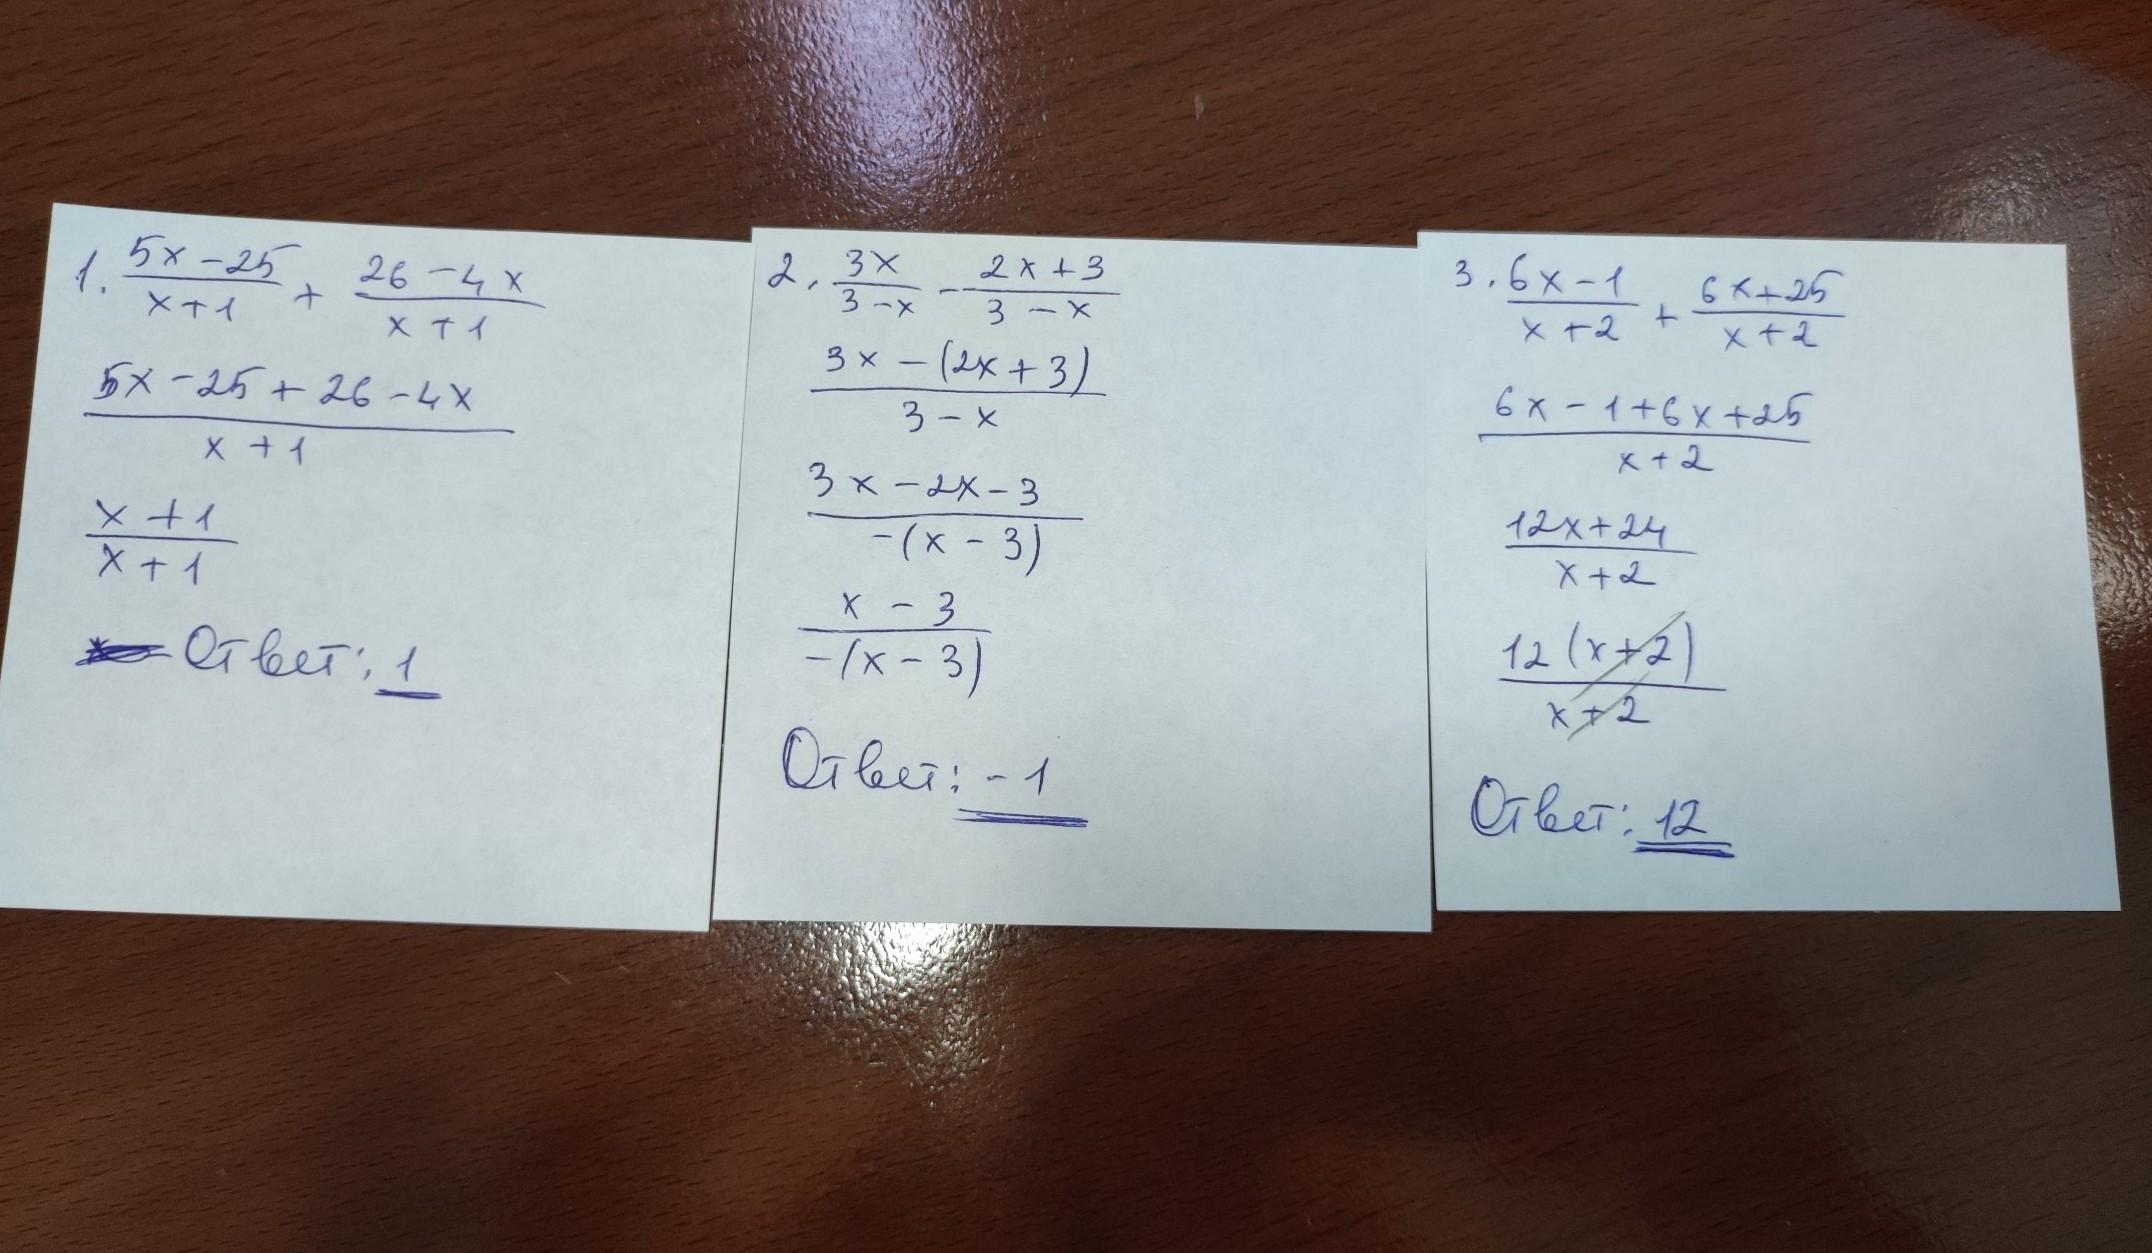 1. (5x-25)/(x+1) + (26-4x)/(x+1)
(5x-25+26-4x)/(x+1)
(x+1)/(x+1)
Ответ: 1
2. 3x/(3-x) - (2x+3)/(3-x)
(3x-(2x+3))/(3-x)
(3x-2x-3)/(-(x-3))
(x-3)/(-(x-3))
Ответ: -1
3. (6x-1)/(x+2) + (6x+25)/(x+2)
(6x-1+6x+25)/(x+2)
(12x+24)/(x+2)
12(x+2)/(x+2)
Ответ: 12